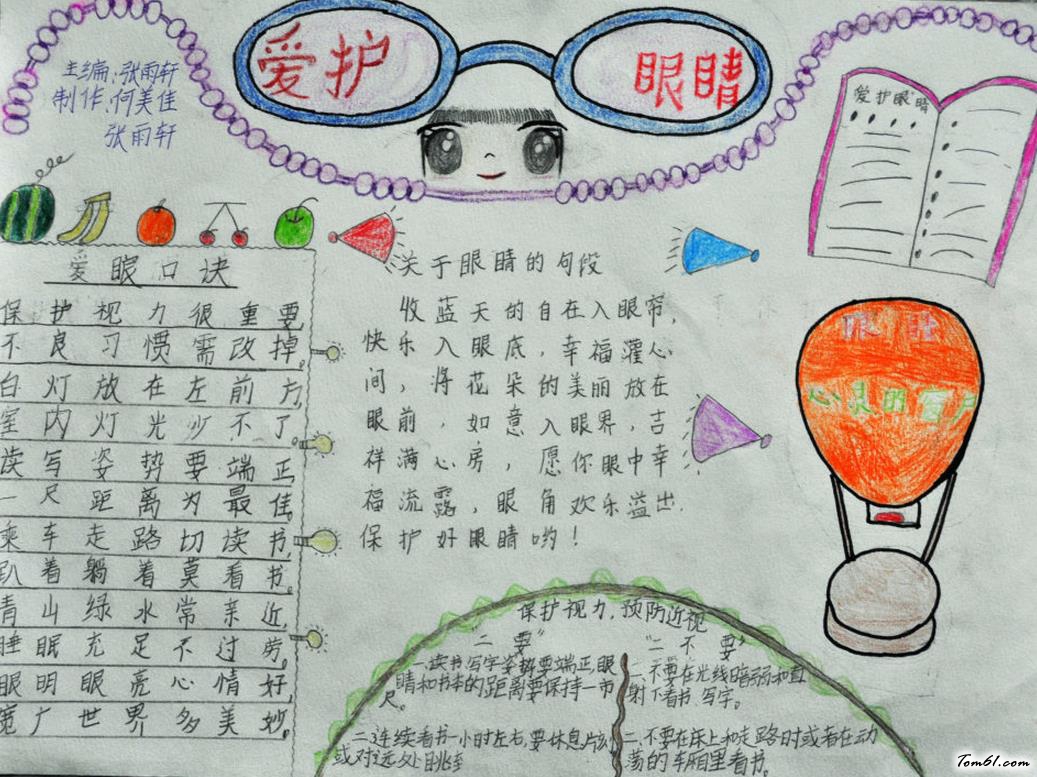 爱护
眼睛
主编:张雨轩
制作:何美佳
张雨轩
爱护眼睛
爱眼口诀
保护视力很重要,
不良习惯需改掉。
白灯放在左前方,
室内灯光少不了
读写姿势要端正
一尺距离为最佳。
乘车走路切读书,
趴着躺着莫看书。
青山绿水常亲近,
睡眠充足不过劳。
眼明眼亮心情好,
宽广世界多美妙。
关于眼睛的句段
收蓝天的自在入眼帘,
快乐入眼底,幸福灌心
间,将花朵的美丽放在
眼前,如意入眼界,吉
祥满心房,愿你眼中幸
福流露,眼角欢乐溢出.
保护好眼睛哟!
眼睛
心灵的窗户
保护视力,预防近视
"二要"
一.读书写字姿势要端正,眼
睛和书本的距离要保持一市
尺。
二.连续看书一小时左右,要休息片刻
或对远处眺
"二不要"
一.不要在光线暗弱和直
射下看书、写字。
二.不要在床上和走路时或者在动
荡的车厢里看书。
Tom61.com